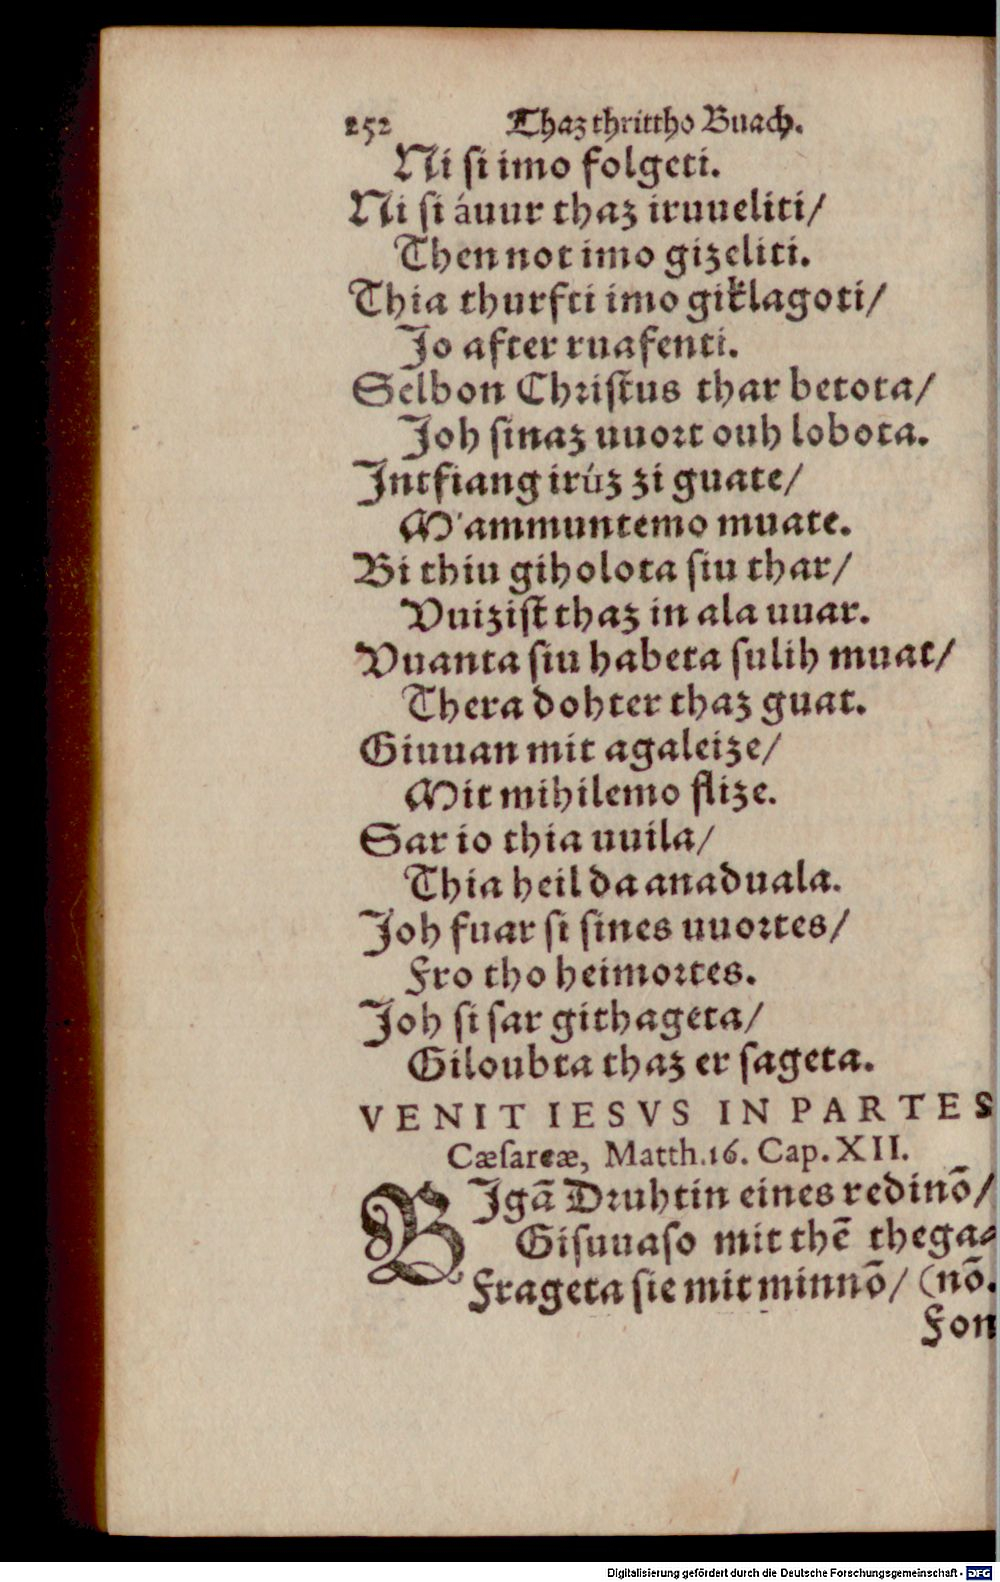 252 Thaz thrittho Buach.
Ni si imo folgeti.
Ni si áuur thaz iruueliti/
Then not imo gizeliti.
Thia thurfti imo giklagoti/
Jo after ruafenti.
Selbon Christus thar betota/
Joh sinaz uuort ouh lobota.
Intfiang irúz zi guate/
M'ammuntemo muate.
Bi thiu giholota siu thar/
Vuizist thaz in ala uuar.
Vuanta siu habeta sulih muat/
Thera dohter thaz guat.
Giuuan mit agaleize/
Mit mihilemo flize.
Sar io thia uuila/
Thia heil da anaduala.
Joh fuar si sines uuortes/
Fro tho heimortes.
Joh si sar githageta/
Giloubta thaz er sageta.
VENIT IESVS IN PARTES
Cæsareæ, Matth.16. Cap. XII.
BIgā Druhtin eines redinō/
Gisuuaso mit thē thega⸗
Frageta sie mit minnō/ (nō.
Fon
Digitalisierung gefördert durch die Deutsche Forschungsgemeinschaft - DFG